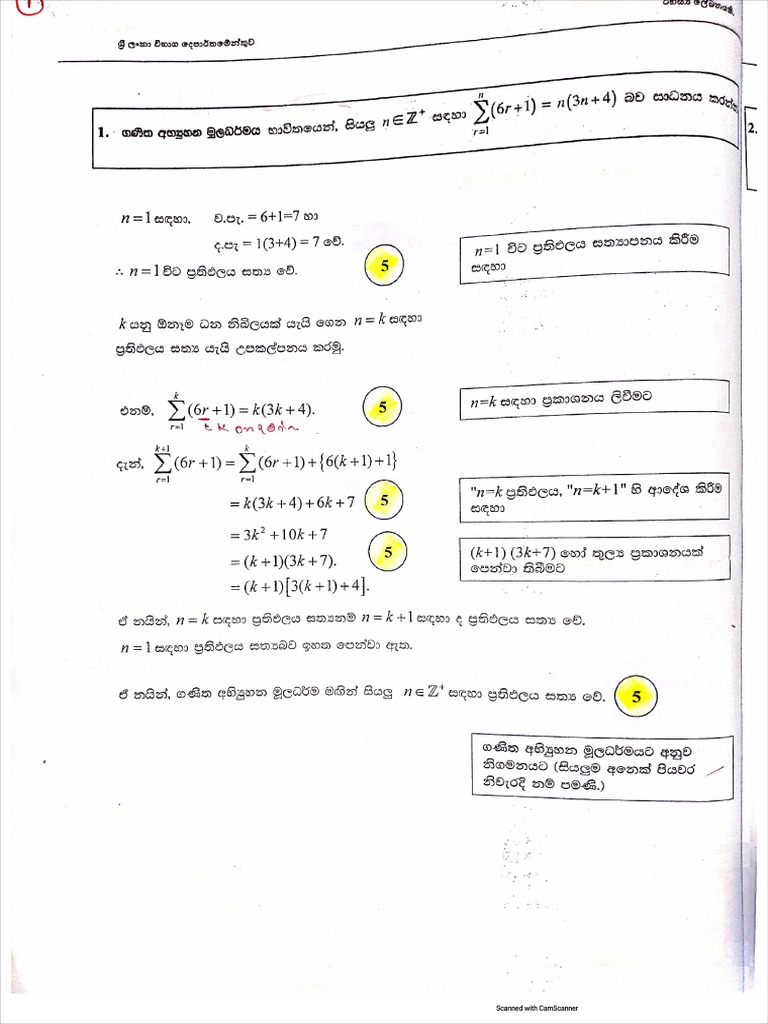 1
ශ්‍රී ලංකා විභාග දෙපාර්තමේන්තුව
1. ගණිත අභ්‍යුහන මූලධර්මය භාවිතයෙන්, සියලු n∈ℤ⁺ සඳහා \sum_{r=1}^{n}(6r+1) = n(3n+4) බව සාධනය කරන්න
2.
n=1 සඳහා, ව.පැ. = 6+1=7 හා
ද.පැ = 1(3+4) = 7 වේ.
∴ n=1 විට ප්‍රතිඵලය සත්‍ය වේ.
5
n=1 විට ප්‍රතිඵලය සත්‍යාපනය කිරීම
සඳහා
k යනු ඕනෑම ධන නිඛිලයක් යැයි ගෙන n = k සඳහා
ප්‍රතිඵලය සත්‍ය යැයි උපකල්පනය කරමු.
එනම්, \sum_{r=1}^{k}(6r+1) = k(3k+4).
5
n=k සඳහා ප්‍රකාශනය ලිවීමට
දැන්, \sum_{r=1}^{k+1}(6r+1) = \sum_{r=1}^{k}(6r+1)+{6(k+1)+1}
= k(3k+4)+6k+7
5
"n=k ප්‍රතිඵලය, "n=k+1" හි ආදේශ කිරීම
සඳහා
= 3k²+10k+7
= (k+1)(3k+7).
5
(k+1) (3k+7) හෝ තුල්‍ය ප්‍රකාශනයක්
පෙන්වා තිබීමට
= (k+1)[3(k+1)+4].
ඒ නයින්, n = k සඳහා ප්‍රතිඵලය සත්‍යනම් n = k+1 සඳහා ද ප්‍රතිඵලය සත්‍ය වේ.
n = 1 සඳහා ප්‍රතිඵලය සත්‍යබව ඉහත පෙන්වා ඇත.
ඒ නයින්, ගණිත අභ්‍යුහන මූලධර්ම මඟින් සියලු n∈ℤ⁺ සඳහා ප්‍රතිඵලය සත්‍ය වේ.
5
ගණිත අභ්‍යුහන මූලධර්මයට අනුව
නිගමනයට (සියලුම අනෙක් පියවර
නිවැරදි නම් පමණි.)
Scanned with CamScanner